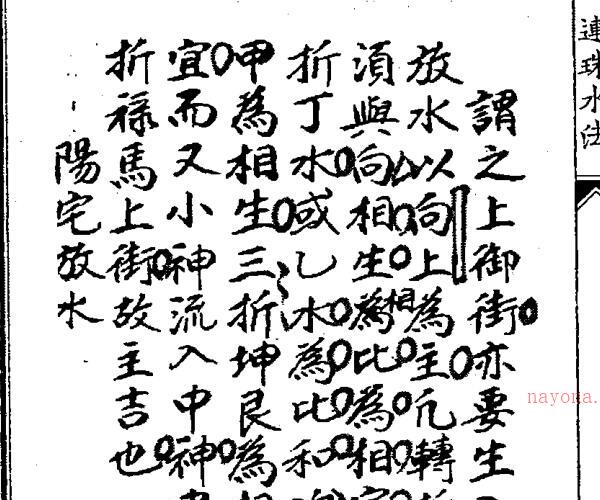 連珠水法
謂之上御街亦要生
放水以向上為主凡轉
須與向相生相為比為相
折丁水或乙水為比和
甲為相生三折坤艮為
宜而又小神流入中神
折祿馬上街故主吉也
陽宅放水
nayona.